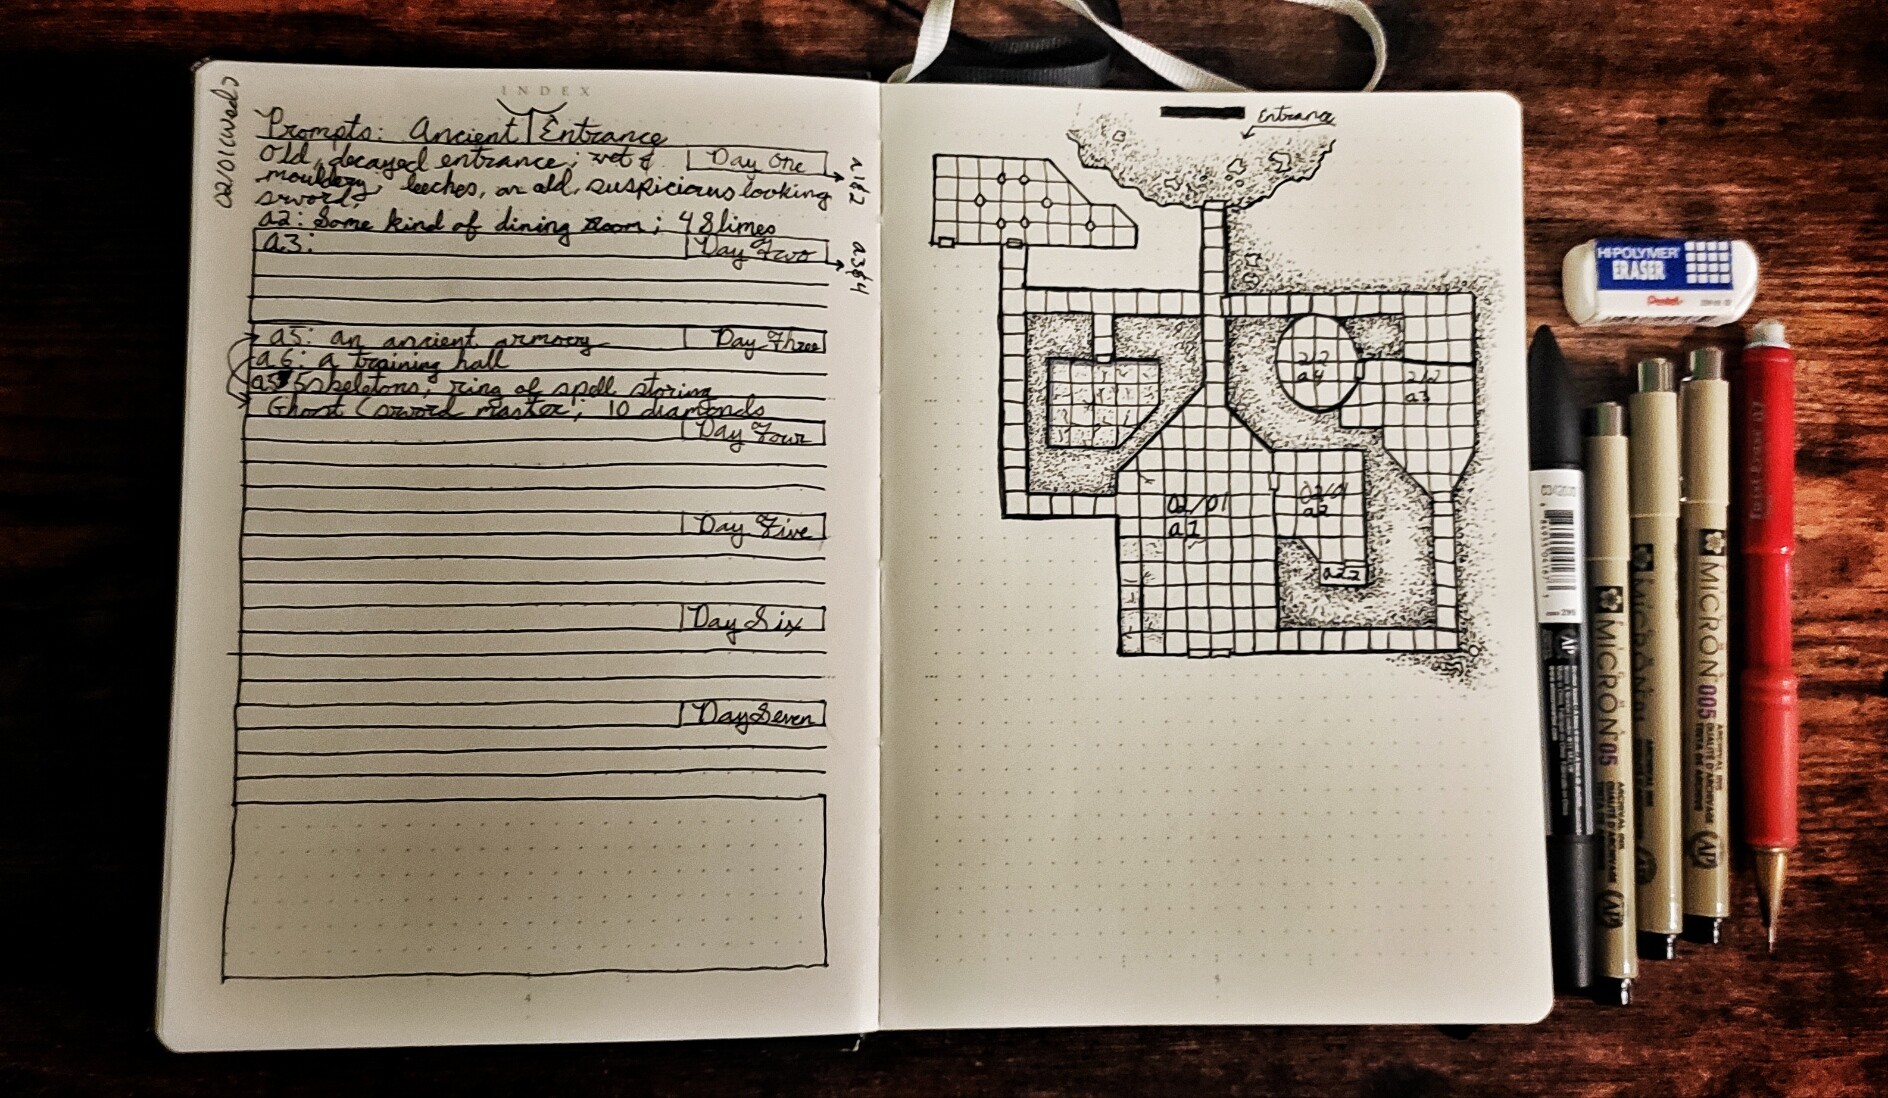 INDEX
Prompts: Ancient Entrance
Old, decayed entrance; wet &
Day One
mouldery, leeches, an old, suspicious looking
sword;
a1&2
a2: Some kind of dining room; 4 Slimes
a3:
Day Two
a3&4
a5: an ancient armory
Day Three
a6: a training hall
a5 5 skeletons, ring of spell storing
Ghost (sword master; 10 diamonds
Day Four
Day Five
Day Six
Day Seven
4
Entrance
2/2
a4
2/2
a3
02/01
a1
02/01
a2
a22
5
HI-POLYMER
ERASER
Pentel
MICRON 05
MICRON
MICRON 005
ARCHIVAL INK